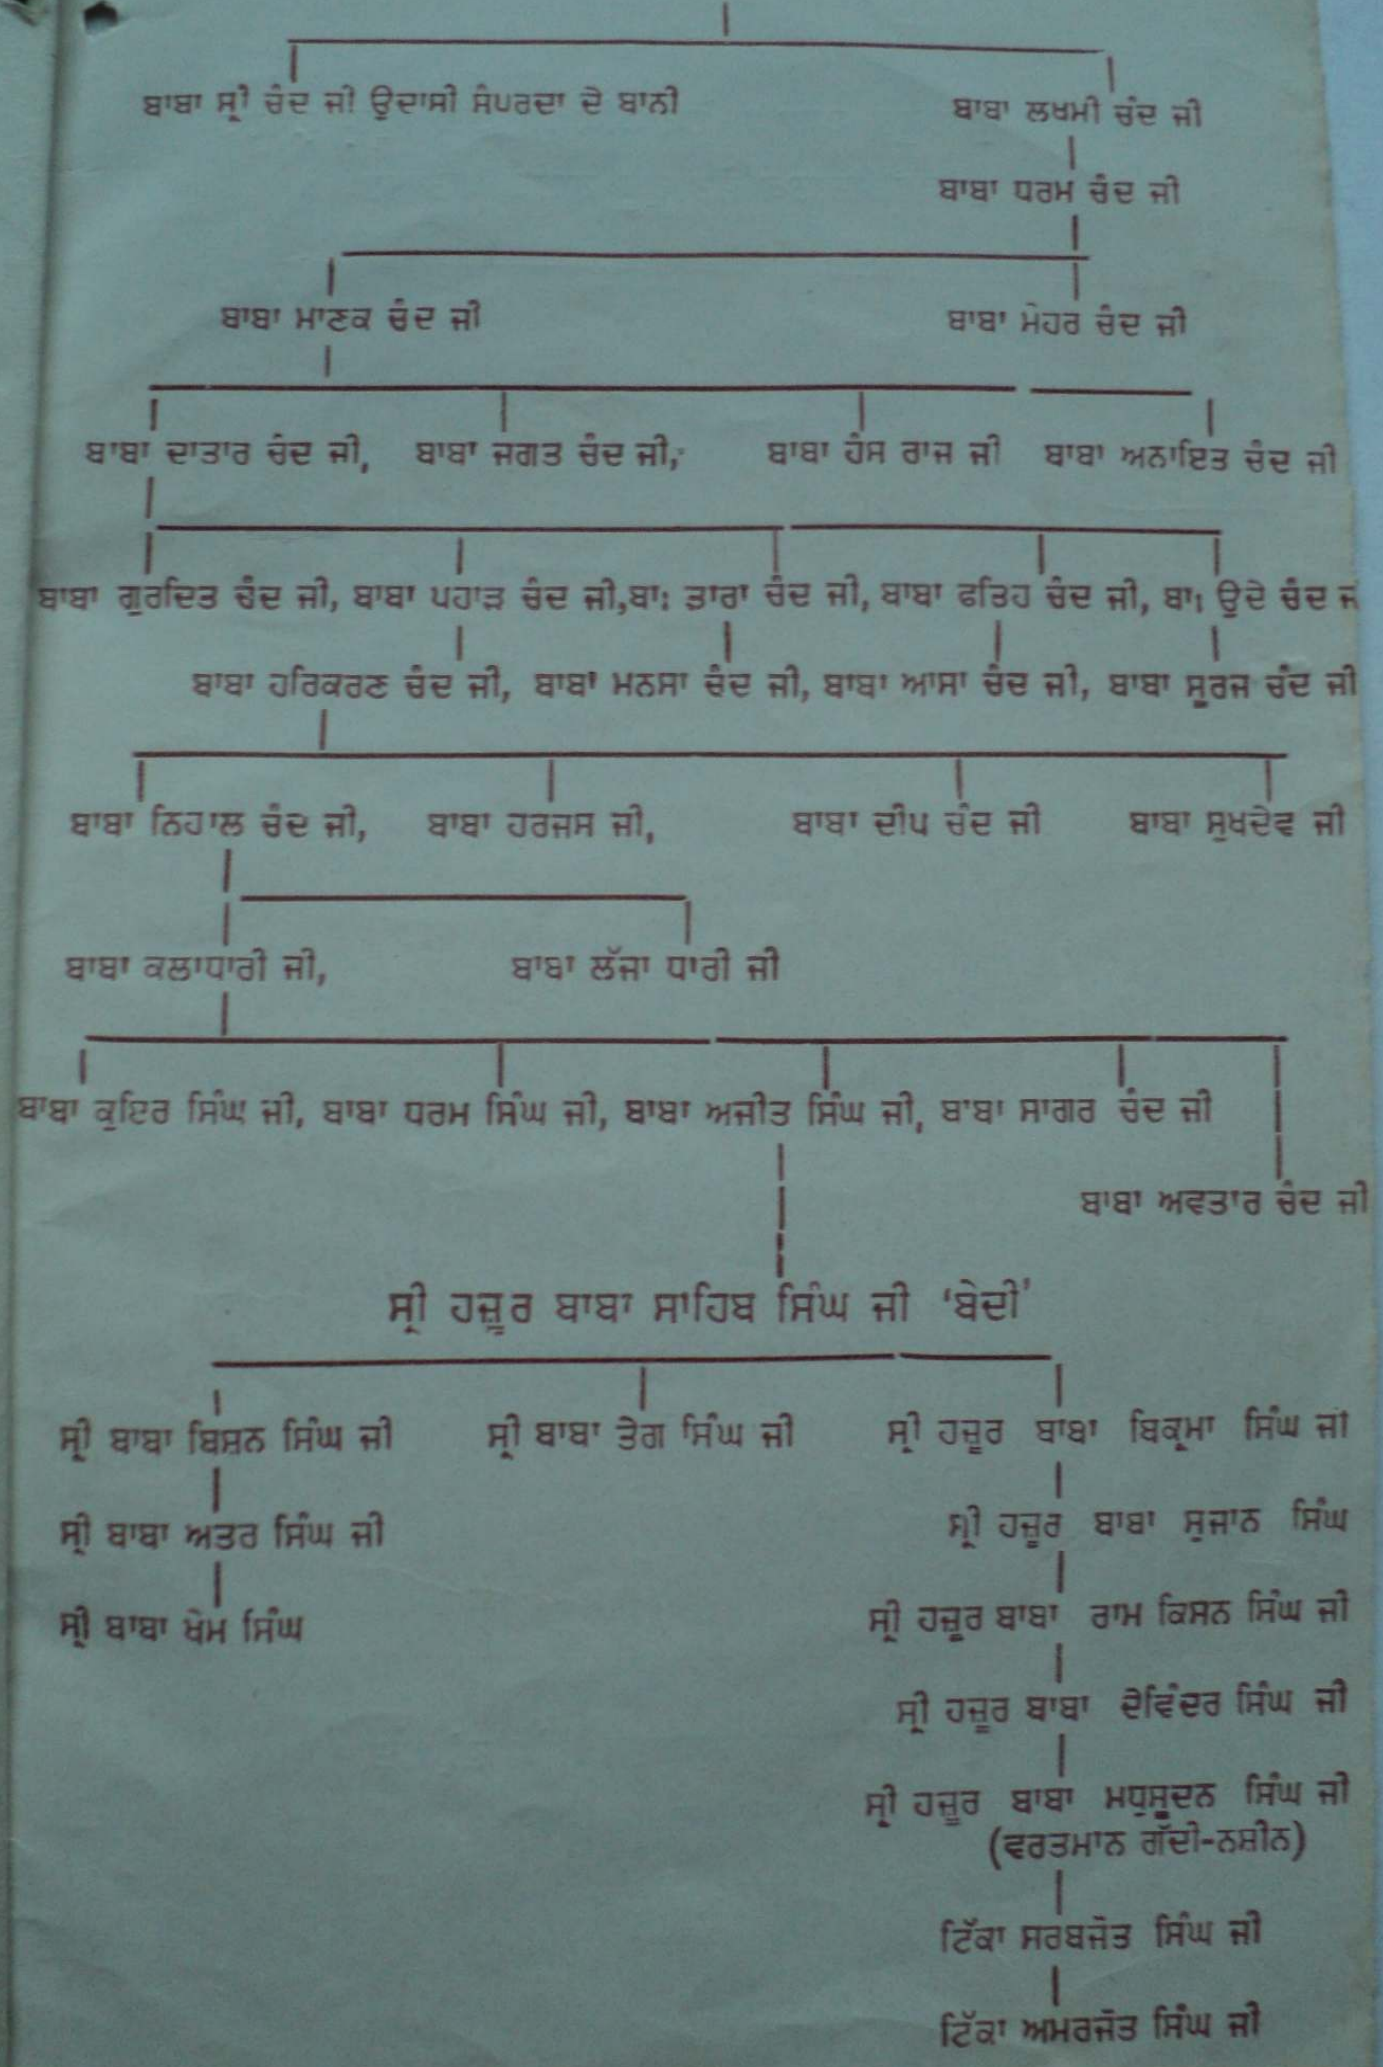 ਬਾਬਾ ਸ੍ਰੀ ਚੰਦ ਜੀ ਉਦਾਸੀ ਸੰਪਰਦਾ ਦੇ ਬਾਨੀ ਬਾਬਾ ਲਖਮੀ ਚੰਦ ਜੀ
ਬਾਬਾ ਧਰਮ ਚੰਦ ਜੀ
ਬਾਬਾ ਮਾਣਕ ਚੰਦ ਜੀ ਬਾਬਾ ਮੇਹਰ ਚੰਦ ਜੀ
ਬਾਬਾ ਦਾਤਾਰ ਚੰਦ ਜੀ, ਬਾਬਾ ਜਗਤ ਚੰਦ ਜੀ, ਬਾਬਾ ਹੰਸ ਰਾਜ ਜੀ ਬਾਬਾ ਅਨਾਇਤ ਚੰਦ ਜੀ
ਬਾਬਾ ਗੁਰਦਿਤ ਚੰਦ ਜੀ, ਬਾਬਾ ਪਹਾੜ ਚੰਦ ਜੀ, ਬਾ: ਤਾਰਾ ਚੰਦ ਜੀ, ਬਾਬਾ ਫਤਿਹ ਚੰਦ ਜੀ, ਬਾ: ਉਦੇ ਚੰਦ ਜ
ਬਾਬਾ ਹਰਿਕਰਣ ਚੰਦ ਜੀ, ਬਾਬਾ ਮਨਸਾ ਚੰਦ ਜੀ, ਬਾਬਾ ਆਸਾ ਚੰਦ ਜੀ, ਬਾਬਾ ਸੂਰਜ ਚੰਦ ਜੀ
ਬਾਬਾ ਨਿਹਾਲ ਚੰਦ ਜੀ, ਬਾਬਾ ਹਰਜਸ ਜੀ, ਬਾਬਾ ਦੀਪ ਚੰਦ ਜੀ ਬਾਬਾ ਸੁਖਦੇਵ ਜੀ
ਬਾਬਾ ਕਲਾਧਾਰੀ ਜੀ, ਬਾਬਾ ਲੱਜਾ ਧਾਰੀ ਜੀ
ਬਾਬਾ ਕੁਇਰ ਸਿੰਘ ਜੀ, ਬਾਬਾ ਧਰਮ ਸਿੰਘ ਜੀ, ਬਾਬਾ ਅਜੀਤ ਸਿੰਘ ਜੀ, ਬਾਬਾ ਸਾਗਰ ਚੰਦ ਜੀ
ਬਾਬਾ ਅਵਤਾਰ ਚੰਦ ਜੀ
ਸ੍ਰੀ ਹਜ਼ੂਰ ਬਾਬਾ ਸਾਹਿਬ ਸਿੰਘ ਜੀ ‘ਬੇਦੀ’
ਸ੍ਰੀ ਬਾਬਾ ਬਿਸ਼ਨ ਸਿੰਘ ਜੀ ਸ੍ਰੀ ਬਾਬਾ ਤੇਗ ਸਿੰਘ ਜੀ ਸ੍ਰੀ ਹਜ਼ੂਰ ਬਾਬਾ ਬਿਕ੍ਰਮਾ ਸਿੰਘ ਜੀ
ਸ੍ਰੀ ਬਾਬਾ ਅਤਰ ਸਿੰਘ ਜੀ ਸ੍ਰੀ ਹਜ਼ੂਰ ਬਾਬਾ ਸੁਜਾਨ ਸਿੰਘ
ਸ੍ਰੀ ਬਾਬਾ ਖੇਮ ਸਿੰਘ ਸ੍ਰੀ ਹਜ਼ੂਰ ਬਾਬਾ ਰਾਮ ਕਿਸਨ ਸਿੰਘ ਜੀ
ਸ੍ਰੀ ਹਜ਼ੂਰ ਬਾਬਾ ਦੇਵਿੰਦਰ ਸਿੰਘ ਜੀ
ਸ੍ਰੀ ਹਜ਼ੂਰ ਬਾਬਾ ਮਧੁਸੂਦਨ ਸਿੰਘ ਜੀ
(ਵਰਤਮਾਨ ਗੱਦੀ-ਨਸ਼ੀਨ)
ਟਿੱਕਾ ਸਰਬਜੋਤ ਸਿੰਘ ਜੀ
ਟਿੱਕਾ ਅਮਰਜੋਤ ਸਿੰਘ ਜੀ